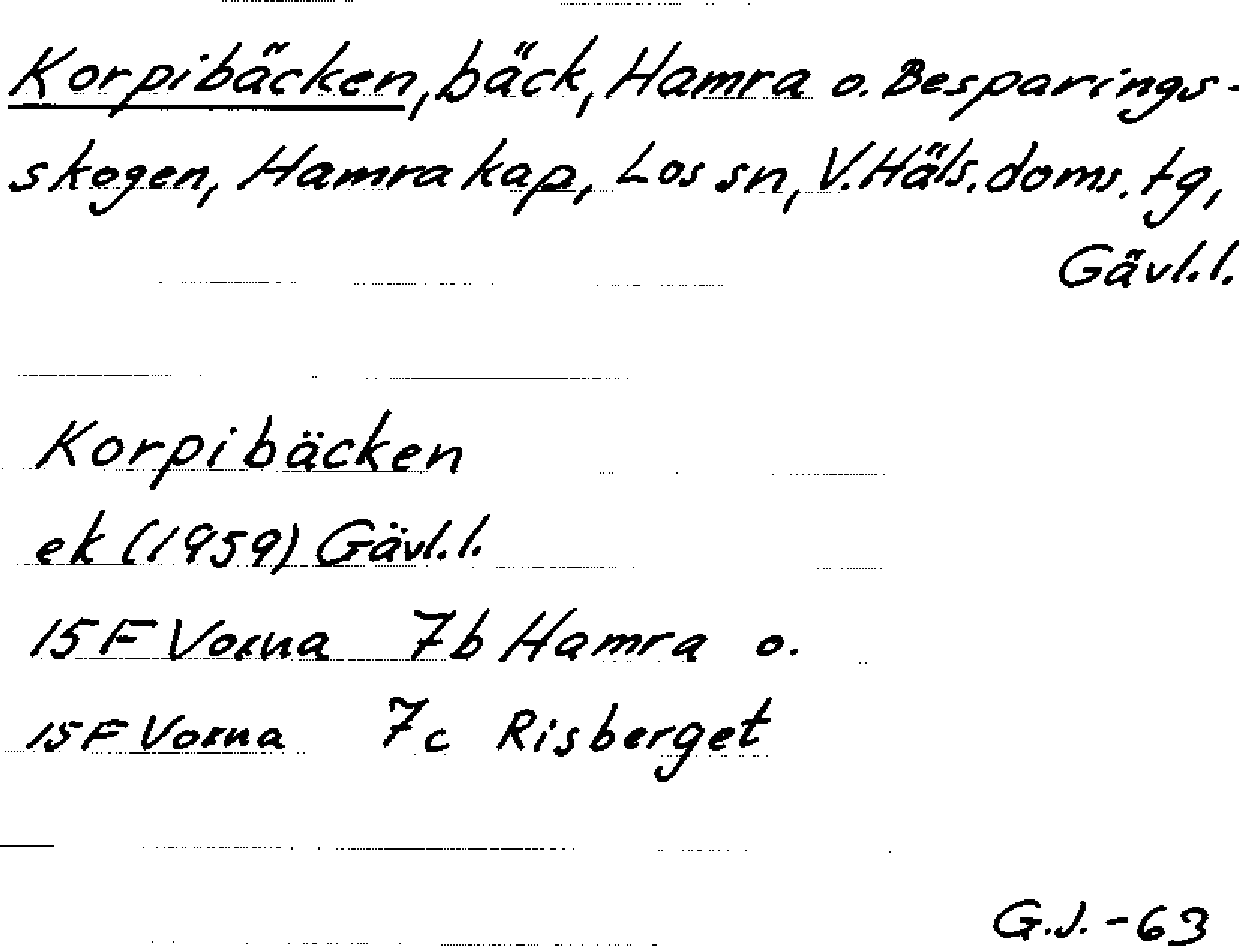 Korpibäcken, bäck, Hamra o. Besparings-
skogen, Hamra kap, Los sn, V. Häls. doms. tg,
Gävl.l.
Korpibäcken
ek (1959) Gävl.l.
15F Voxna 7b Hamra o.
15F Voxna 7c Risberget
G.J. -63